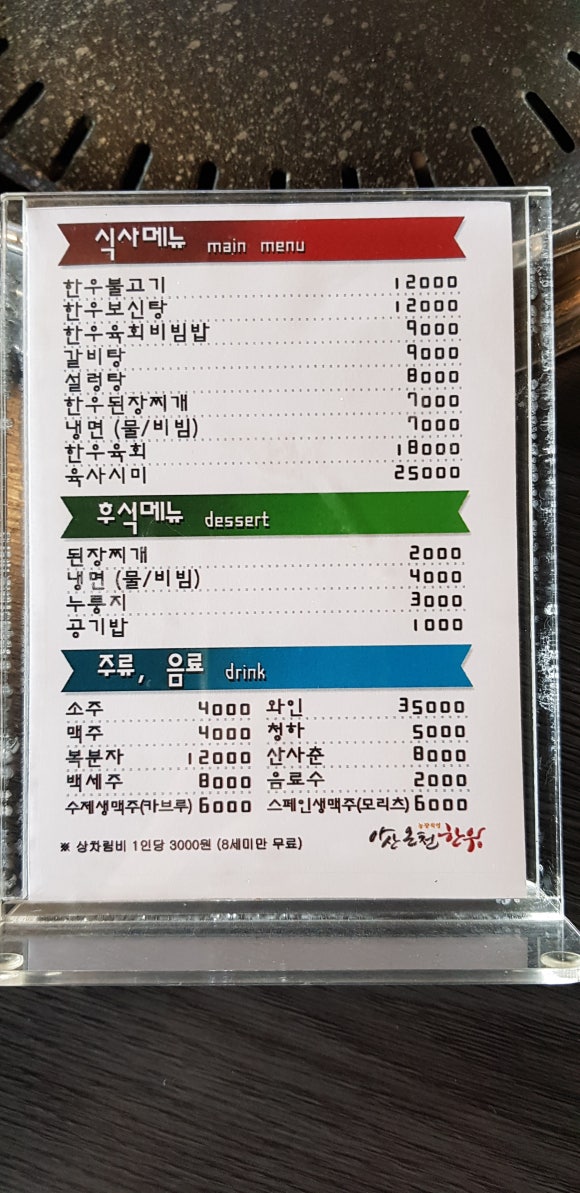 식사메뉴 main menu
한우불고기 12000
한우보신탕 12000
한우육회비빔밥 9000
갈비탕 9000
설렁탕 8000
한우된장찌개 7000
냉면 (물/비빔) 7000
한우육회 18000
육사시미 25000
후식메뉴 dessert
된장찌개 2000
냉면 (물/비빔) 4000
누룽지 3000
공기밥 1000
주류, 음료 drink
소주 4000 와인 35000
맥주 4000 청하 5000
복분자 12000 산사춘 8000
백세주 8000 음료수 2000
수제생맥주(카브루) 6000 스페인생맥주(모리츠) 6000
※ 상차림비 1인당 3000원 (8세미만 무료)
아산온천한우